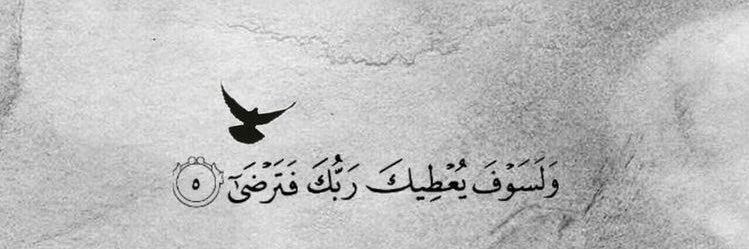 وَلَسَوْفَ يُعْطِيكَ رَبُّكَ فَتَرْضَىٰٓ ٥